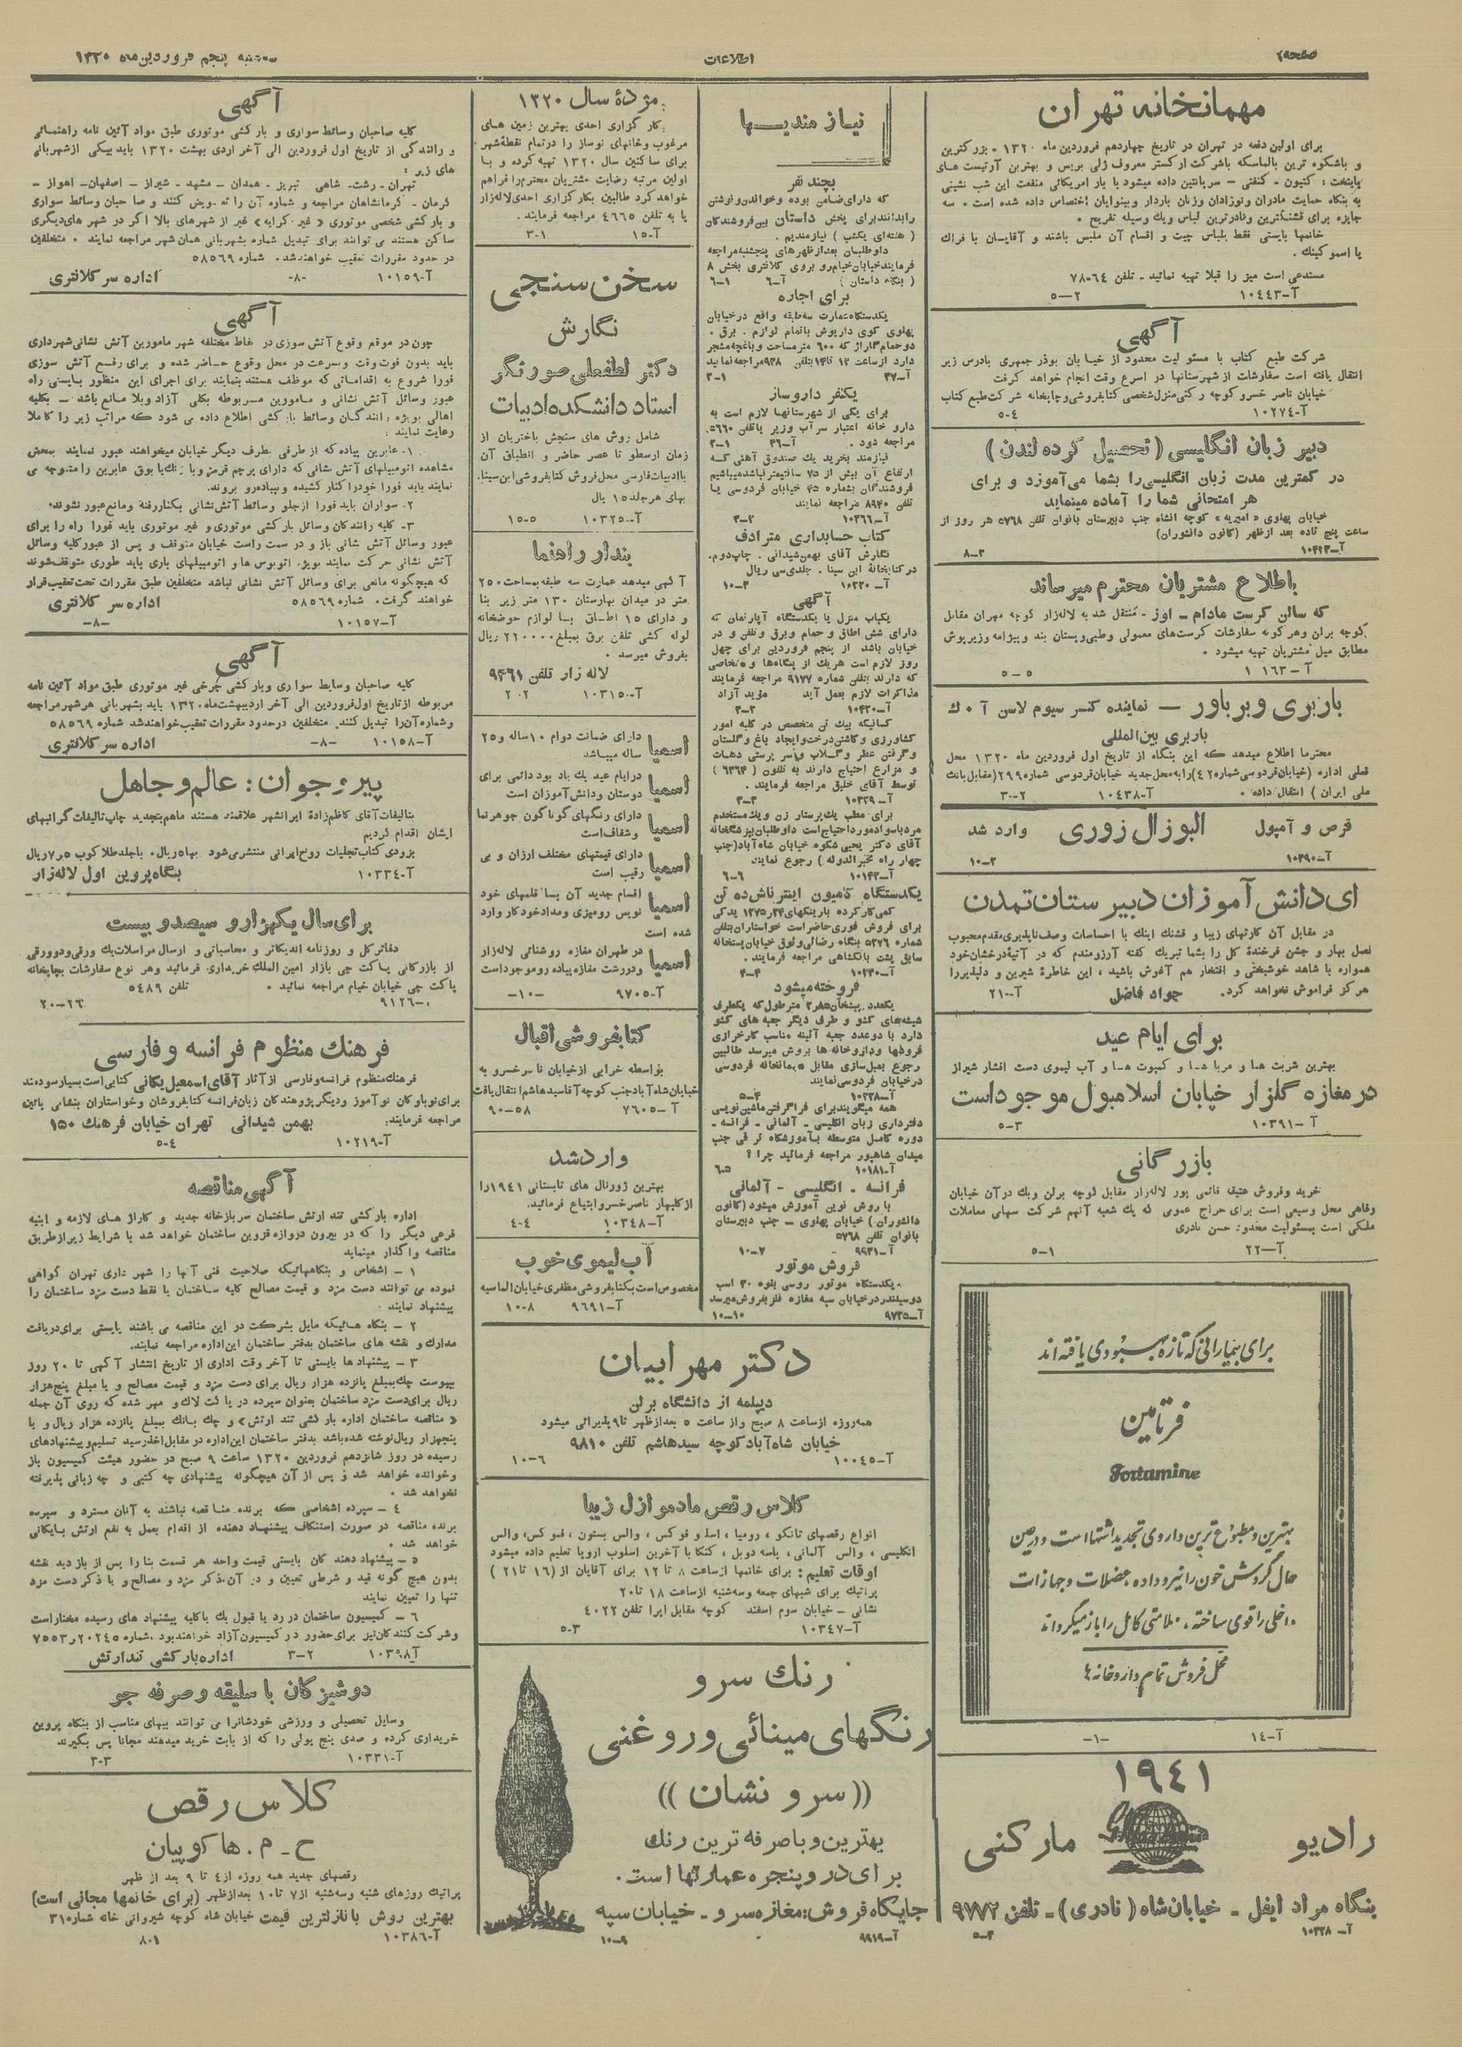 صفحه ۲
اطلاعات
سه‌شنبه پنجم فروردین ماه ۱۳۲۰
مهمانخانه تهران
برای اولین دفعه در تهران در تاریخ چهاردهم فروردین ماه ۱۳۲۰ - بزرگترین
و باشکوه ترین بالماسکه باشرکت ارکستر معروف ژلی بویس و بهترین آرتیست های
به بنگاه حمایت مادران ونوزادان وزنان باردار وبینوایان اختصاص داده شده است . سه
جایزه برای قشنگترین ونادرترین لباس ویك وسیله تفریح .
خانمها بایستی فقط بلباس چیت و اقسام آن ملبس باشند و آقایان با فراك
یا اسموکینك .
مستدعی است میز را قبلا تهیه نمائید - تلفن ۷۸۰۶۴
آ-۱۰۴۴۳ ۲-۵
آگهی
شرکت طبع کتاب با مسئولیت محدود از خیابان بوذر جمهری بادرس زیر
انتقال یافته است سفارشات از شهرستانها در اسرع وقت انجام خواهد گرفت
خیابان ناصر خسرو کوچه رکنی منزل شخصی کتابفروشی وچاپخانه شرکت طبع کتاب
آ-۱۰۲۷۴ ۴-۵
دبیر زبان انگلیسی ( تحصیل کرده لندن )
در کمترین مدت زبان انگلیسی را بشما می‌آموزد و برای
هر امتحانی شما را آماده مینماید
خیابان پهلوی « امیریه » کوچه انشاه جنب دبیرستان بانوان تلفن ۵۷۶۸ هر روز از
ساعت پنج تاده بعد ازظهر (کانون دانشوران)
آ-۱۰۴۲۳ ۳-۸
باطلاع مشتریان محترم میرساند
که سالن کرست مادام - اوز - منتقل شد به لاله‌زار کوچه مهران مقابل
کوچه بران وهر گونه سفارشات کرست‌های معمولی وطبی وپستان بند وپیژامه وزیرپوش
مطابق میل مشتریان تهیه میشود .
۵-۵
باربری وبرباور — نماینده کنسر سیوم لاسن آ ۰ ك
باربری بین‌المللی
محترما اطلاع میدهد که این بنگاه از تاریخ اول فروردین ماه ۱۳۲۰ محل
قبلی اداره (خیابان فردوسی شماره ۴۲) را به محل جدید خیابان فردوسی شماره ۲۹۹ (مقابل بانك
ملی ایران ) انتقال داده .
آ-۱۰۴۳۸ ۲-۳۰
قرص و آمپول البوزال زوری وارد شد
آ-۱۰۳۹۰ ۲-۱۰
ای دانش آموزان دبیرستان تمدن
در مقابل آن کارتهای زیبا و قشنك اینك با احساسات وصف ناپذیری مقدم محبوب
فصل بهار و جشن فرخنده گل را بشما تبریك گفته آرزومندم که در آتیه درخشان خود
همواره با شاهد خوشبختی و افتخار هم آغوش باشید ، این خاطرهٔ شیرین و دلپذیر را
هرگز فراموش نخواهد کرد. جواد فاضل آ-۲۱
برای ایام عید
بهترین شربت ها و مربا ها و کمپوت ها و آب لیموی دست افشار شیراز
در مغازه گلزار خیابان اسلامبول موجود است
آ -۱۰۳۹۱ ۳-۵
بازرگانی
خرید وفروش عتیقه قائمی پور لاله‌زار مقابل کوچه برلن ویك در آن خیابان
رفاهی محل وسیعی است برای حراج عمومی که یك شعبه آنهم شرکت سهامی معاملات
ملکی است بمسئولیت محدود: حسن نادری
آ-۲۲ ۱-۵
برای بیمارانی که تازه بهبودی یافته اند
فرتامین
Fortamine
بهترین و مطبوع ترین داروی تجدید اشتها است و در عین
حال گردش خون را نیرو داده، عضلات و جهازات
داخلی را قوی ساخته، سلامتی کامل را باز میگرداند
محل فروش تمام داروخانه ها
آ-۱۴ -۱-
۱۹۴۱
رادیو مارکنی
بنگاه مراد ایفل - خیابان شاه ( نادری ) - تلفن ۹۷۷۲
آ- ۱۰۳۲۸ ۴-۵
نیازمندیها
بچند نفر
که دارای ضامن بوده وخواندن ونوشتن
را بدانند برای پخش داستان بین فروشندگان
( هفته‌ای یکشب ) نیازمندیم .
داوطلبان بعد ازظهرهای پنجشنبه مراجعه
فرمایند خیابان خیام روبروی کلانتری بخش ۸
( بنگاه داستان ) آ-۶ ۱-۶
برای اجاره
یکدستگاه عمارت سه طبقه واقع در خیابان
پهلوی کوی داریوش باتمام لوازم . برق .
دوحمام گاراژ که ۶۰۰ متر مساحت وباغچه مشجر
دارد ازساعت ۱۲ تا ۱۴ بتلفن ۹۳۸ مراجعه نمایند
آ-۳۷ ۱-۲
یکنفر داروساز
برای یکی از شهرستانها لازم است به
دارو خانه اعتبار سرآب وزیر یا تلفن ۵۶۶۰
مراجعه شود . آ-۳۶ ۱-۳
نیازمند بخرید یك صندوق آهنی که
ارتفاع آن بیش از ۷۵ سانتیمتر نباشد میباشیم
فروشندگان بشماره ۴۵ خیابان فردوسی یا
تلفن ۸۹۴۰ مراجعه نمایند
آ-۱۰۳۶۶ ۲-۳
کتاب حسابداری مترادف
نگارش آقای بهمن شیدانی . چاپ دوم.
در کتابخانهٔ ابن سینا . جلدی سی ریال
آ- ۱۰۳۲۰ ۳-۱۰
آگهی
یکباب منزل یا یکدستگاه آپارتمان که
دارای شش اطاق و حمام وبرق وتلفن و در
خیابان باشد از پنجم فروردین برای چهل
روز لازم است هریك از بنگاه‌ها و اشخاصی
که دارند بتلفن شماره ۹۱۷۷ مراجعه فرمایند
مذاکرات لازم بعمل آید مؤید آزاد
آ-۱۰۴۳۰ ۲-۳
کسانیکه بیك تن متخصص در کلیه امور
کشاورزی وکاشتن درخت وایجاد باغ وگلستان
وگرفتن عطر وگلاب وسرپرستی دهات
و مزارع احتیاج دارند به تلفون ( ۶۳۶۴ )
توسط آقای خلیق مراجعه فرمایند .
آ-۱۰۳۲۹ ۳-۳
برای مطب یك پرستار زن ویك مستخدم
مرد با سواد مورد احتیاج است داوطلبان بپزشگخانه
آقای دکتر یحیی شکوه خیابان شاه‌آباد (جنب
چهار راه مخبرالدوله ) رجوع نمایند
آ-۱۰۱۴۲ ۶-۶
یکدستگاه کامیون اینترناش ده تن
کمی کار کرده بارینگهای ۳۴ر۱۳۷۵ یدکی
برای فروش فوری حاضر است خواستاران بتلفن
شماره ۵۲۷۶ بنگاه رضائی وثوق خیابان پستخانه
سابق پشت بانکشاهی مراجعه فرمایند .
آ-۱۰۲۳۰ ۴-۴
فروخته میشود
دارد با دو عدد جعبه آئینه مناسب کار خرازی
فروشها وداروخانه ها بروش میرسد طالبین
رجوع بمبل‌سازی مقابل مهمانخانه فردوسی
در خیابان فردوسی نمایند
آ-۱۰۲۲۸ ۴-۵
همه میگویند برای فراگرفتن ماشین نویسی
دفترداری زبان انگلیسی - آلمانی - فرانسه -
دوره کامل متوسطه بآموزشگاه ترقی جنب
میدان شاهپور مراجعه فرمائید چرا ؟
آ-۱۰۱۸۱ ۵-۶
فرانسه . انگلیسی - آلمانی
با روش نوین آموزش میشود (کانون
دانشوران) خیابان پهلوی - جنب دبیرستان
بانوان تلفن ۵۷۶۸
آ-۹۹۳۱ ۷-۱۰
فروش موتور
یکدستگاه موتور روسی بقوه ۳۰ اسب
دوسیلندر در خیابان سپه مغازه فلز بفروش میرسد
آ-۹۷۳۵ ۱۰-۱۰
مژدهٔ سال ۱۳۲۰
کار گزاری احدی بهترین زمین های
مرغوب وخانهای نوساز را در تمام نقطهٔ شهر
برای ساکنین سال ۱۳۲۰ تهیه کرده و با
اولین مرتبه رضایت مشتریان محترم را فراهم
خواهد کرد طالبین بکار گزاری احدی لاله‌زار
یا به تلفن ۴۶۶۵ مراجعه فرمایند.
آ-۱۵ ۱-۳۰
سخن سنجی
نگارش
دکتر لطفعلی صورتگر
استاد دانشکده ادبیات
شامل روش های سنجش باختریان از
زمان ارسطو تا عصر حاضر و انطباق آن
با ادبیات فارسی محل فروش کتابفروشی ابن سینا.
بهای هر جلد ۱۵ ریال
آ-۱۰۳۲۵ ۵-۱۵
بندار راهنما
آگهی میدهد عمارت سه طبقه بمساحت ۲۵۰
متر در میدان بهارستان ۱۳۰ متر زیر بنا
و دارای ۱۵ اطاق با لوازم حوضخانه
لوله کشی تلفن برق بمبلغ ۲۲۰۰۰۰ ریال
بفروش میرسد .
لاله زار تلفن ۹۴۶۱
آ-۱۰۳۱۵ ۲-۲
اسمیا دارای ضمانت دوام ۱۰ ساله و ۲۵
ساله میباشد
اسمیا در ایام عید یك یاد بود دائمی برای
دوستان ودانش آموزان است
اسمیا دارای رنگهای گوناگون جوهرنما
وشفاف است
اسمیا دارای قیمتهای مختلف ارزان و بی
رقیب است
اسمیا اقسام جدید آن با قلمهای خود
نویس رومیزی ومداد خودکار وارد
شده است
اسمیا در طهران مغازه روشنائی لاله‌زار
ودر رشت مغازه پیاده رو موجود است
آ-۹۷۰۵ -۱۰-
کتابفروشی اقبال
بواسطه خرابی از خیابان ناصر خسرو به
خیابان شاه‌آباد جنب کوچه آقا سید هاشم انتقال یافت
آ -۷۶۰۵ ۵۸-۹۰
وارد شد
بهترین ژورنال های تابستانی ۱۹۴۱ را
از کلبهار ناصر خسرو ابتیاع فرمائید.
آ-۱۰۳۴۸ ۴-۴
آب لیموی خوب
مخصوص است بکتابفروشی مظفری خیابان الماسیه
آ-۹۶۹۱ ۸-۱۰
دکتر مهرابیان
دیپلمه از دانشگاه برلن
همه‌روزه ازساعت ۸ صبح و از ساعت ۵ بعدازظهر تا ۹ پذیرائی میشود
خیابان شاه آباد کوچه سید هاشم تلفن ۹۸۱۰
آ-۱۰۰۴۵ ۶-۱۰
کلاس رقص مادموازل زیبا
انواع رقصهای تانگو ، رومبا ، اسلو فوکس ، والس بستون ، فوکس ، والس
انگلیسی ، والس آلمانی ، پاسه دوبل ، کنگا با آخرین اسلوب اروپا تعلیم داده میشود
اوقات تعلیم : برای خانمها از ساعت ۸ تا ۱۲ برای آقایان از ( ۱۶ تا ۲۱ )
پراتیك برای شبهای جمعه وسه‌شنبه ازساعت ۱۸ تا ۲۰
نشانی - خیابان سوم اسفند کوچه مقابل اپرا تلفن ۴۰۲۲
آ-۱۰۳۴۷ ۳-۵
رنك سرو
رنگهای مینائی وروغنی
(( سرو نشان ))
بهترین وباصرفه ترین رنك
برای در وپنجره عمارتها است .
جایگاه فروش: مغازه سرو - خیابان سپه
آ-۹۹۱۹ ۹-۱۰
آگهی
کلیه صاحبان وسائط سواری و بارکشی موتوری طبق مواد آئین نامه راهنمائی
و رانندگی از تاریخ اول فروردین الی آخر اردی بهشت ۱۳۲۰ باید بیکی ازشهربانی
های زیر :
تهران - رشت - شاهی تبریز - همدان - مشهد - شیراز - اصفهان - اهواز -
کرمان - کرمانشاهان مراجعه و شماره آن را تعویض کنند و صاحبان وسائط سواری
و بارکشی شخصی موتوری « غیر کرایه » غیر از شهرهای بالا اگر در شهر های دیگری
ساکن هستند می توانند برای تبدیل شماره بشهربانی همان شهر مراجعه نمایند . متخلفین
در حدود مقررات تعقیب خواهند شد. شماره ۵۸۵۶۹
آ-۱۰۱۵۹ -۸- اداره سر کلانتری
آگهی
چون در موقع وقوع آتش سوزی در نقاط مختلفه شهر مامورین آتش نشانی شهرداری
باید بدون فوت وقت وبسرعت در محل وقوع حاضر شده و برای رفع آتش سوزی
فورا شروع به اقداماتی که موظف هستند بنمایند برای اجرای این منظور بایستی راه
عبور وسائل آتش نشانی و مامورین مربوطه بکلی آزاد وبلا مانع باشد - بکلیه
اهالی بویژه رانندگان وسائط بارکشی اطلاع داده می شود که مراتب زیر را کاملا
رعایت نمایند :
۱- عابرین پیاده که از طرفی بطرف دیگر خیابان میخواهند عبور نمایند بمحض
مشاهده اتومبیلهای آتش نشانی که دارای پرچم قرمز و با زنك یا بوق عابرین را متوجه می
نمایند باید فورا خود را کنار کشیده و بپیاده‌رو بروند.
۲- سواران باید فورا از جلو وسائط آتش نشانی بکنار رفته ومانع عبور نشوند.
۳- کلیه رانندگان وسائل بارکشی موتوری و غیر موتوری باید فورا راه را برای
عبور وسائل آتش نشانی باز و در سمت راست خیابان متوقف و پس از عبور کلیه وسائل
آتش نشانی حرکت نمایند بویژه اتوبوس ها و اتومبیلهای باری باید طوری متوقف شوند
که هیچگونه مانعی برای وسائل آتش نشانی نباشد متخلفین طبق مقررات تحت تعقیب قرار
خواهند گرفت. شماره ۵۸۵۶۹ اداره سر کلانتری
آ-۱۰۱۵۷ -۸-
آگهی
کلیه صاحبان وسایط سواری وبارکشی چرخی غیر موتوری طبق مواد آئین نامه
مربوطه ازتاریخ اول فروردین الی آخر اردیبهشت ماه ۱۳۲۰ باید بشهربانی هر شهر مراجعه
وشماره آن را تبدیل کنند. متخلفین در حدود مقررات تعقیب خواهند شد شماره ۵۸۵۶۹
آ-۱۰۱۵۸ -۸- اداره سر کلانتری
پیر و جوان : عالم و جاهل
بتالیفات آقای کاظم زادهٔ ایرانشهر علاقمند هستند ماهم بتجدید چاپ تالیفات گرانبهای
ایشان اقدام کردیم
بزودی کتاب تجلیات روح ایرانی منتشر می‌شود بها ۵ ریال. باجلد طلا کوب ۷ر۵ ریال
آ-۱۰۳۳۴ بنگاه پروین اول لاله‌زار
برای سال یکهزار و سیصد و بیست
دفاتر کل و روزنامه اندیکاتر و محاسباتی و ارسال مراسلات یك ورقی ودوورقی
از بازرگانی پاکت چی بازار امین الملك خریداری فرمائید وهر نوع سفارشات بچاپخانه
پاکت چی خیابان خیام مراجعه نمائید . تلفن ۵۴۸۹
۹۱۲۶ ۲۶-۲۰
فرهنك منظوم فرانسه و فارسی
فرهنك منظوم فرانسه وفارسی از آثار آقای اسمعیل یگانی کتابی است بسیار سودمند
برای نوباوگان نو آموز ودیگر پژوهندگان زبان فرانسه کتابفروشان وخواستاران بنشانی پائین
مراجعه فرمایند: بهمن شیدانی تهران خیابان فرهنك ۱۵۰
آ-۱۰۲۱۹ ۴-۵
آگهی مناقصه
اداره بارکشی تند ارتش ساختمان سربازخانه جدید و کاراژ های لازمه و ابنیه
فرعی دیگر را که در بیرون دروازه قزوین ساختمان خواهد شد با شرایط زیر از طریق
مناقصه واگذار مینماید
۱ - اشخاص و بنگاههائیکه صلاحیت فنی آنها را شهر داری تهران گواهی
نموده می توانند دست مزد و قیمت مصالح کلیه ساختمان یا فقط دست مزد ساختمان را
پیشنهاد نمایند .
۲ - بنگاه هائیکه مایل بشرکت در این مناقصه می باشند بایستی برای دریافت
مدارك و نقشه های ساختمان بدفتر ساختمان این اداره مراجعه نمایند.
۳ - پیشنهاد ها بایستی تا آخر وقت اداری از تاریخ انتشار آگهی تا ۲۰ روز
بپیوست چك بمبلغ پانزده هزار ریال برای دست مزد و قیمت مصالح و یا مبلغ پنج‌هزار
ریال برای دست مزد ساختمان بعنوان سپرده در پاکت لاك و مهر شده که روی آن جمله
« مناقصه ساختمان اداره بارکشی تند ارتش » و چك بانك بمبلغ پانزده هزار ریال و یا
پنجهزار ریال نوشته شده باشد بدفتر ساختمان این اداره در مقابل اخذ رسید تسلیم و پیشنهادهای
رسیده در روز شانزدهم فروردین ۱۳۲۰ ساعت ۹ صبح در حضور هیئت کمیسیون باز
وخوانده خواهد شد و پس از آن هیچگونه پیشنهادی چه کتبی و چه زبانی پذیرفته
نخواهد شد .
۴ - سپرده اشخاصی که برنده مناقصه نباشند به آنان مسترد و سپرده
برنده مناقصه در صورت استنکاف پیشنهاد دهنده از اقدام بعمل به نفع ارتش بایگانی
خواهد شد .
۵ - پیشنهاد دهندگان بایستی قیمت واحد هر قسمت بنا را پس از بازدید نقشه
بدون هیچ گونه قید و شرطی تعیین و در آن ذکر مزد و مصالح و یا ذکر دست مزد
تنها را تعیین نمایند
۶ - کمیسیون ساختمان در رد یا قبول یك یا کلیه پیشنهاد های رسیده مختار است
وشرکت کنندگان نیز برای حضور در کمیسیون آزاد خواهند بود. شماره ۲۰۲۴۵ر۷۵۵۳
آ-۱۰۳۹۸ ۲-۳ اداره بارکشی تند ارتش
دوشیزگان با سلیقه و صرفه جو
وسایل تحصیلی و ورزشی خودشانرا می توانند ببهای مناسب از بنگاه پروین
خریداری کرده و صدی پنج پولی را که از بابت خرید میدهند مجانا پس بگیرند
آ-۱۰۳۳۱ ۳-۳
کلاس رقص
ح - م . هاکوپیان
رقصهای جدید همه روزه از ۴ تا ۹ بعد از ظهر
پراتیك روزهای شنبه وسه‌شنبه از ۷ تا ۱۰ بعدازظهر (برای خانمها مجانی است)
بهترین روش با نازلترین قیمت خیابان شاه کوچه شیروانی خانه شماره ۳۱
آ-۱۰۳۸۶ ۱-۸